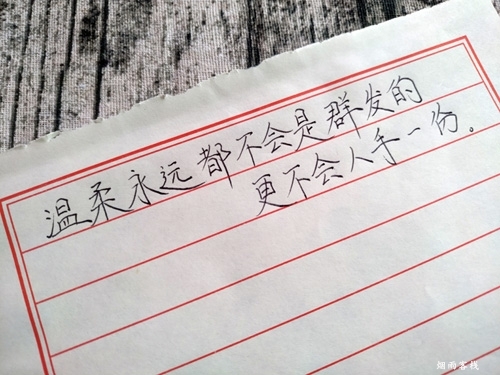 温柔永远都不会是群发的
更不会人手一份。
烟雨客栈